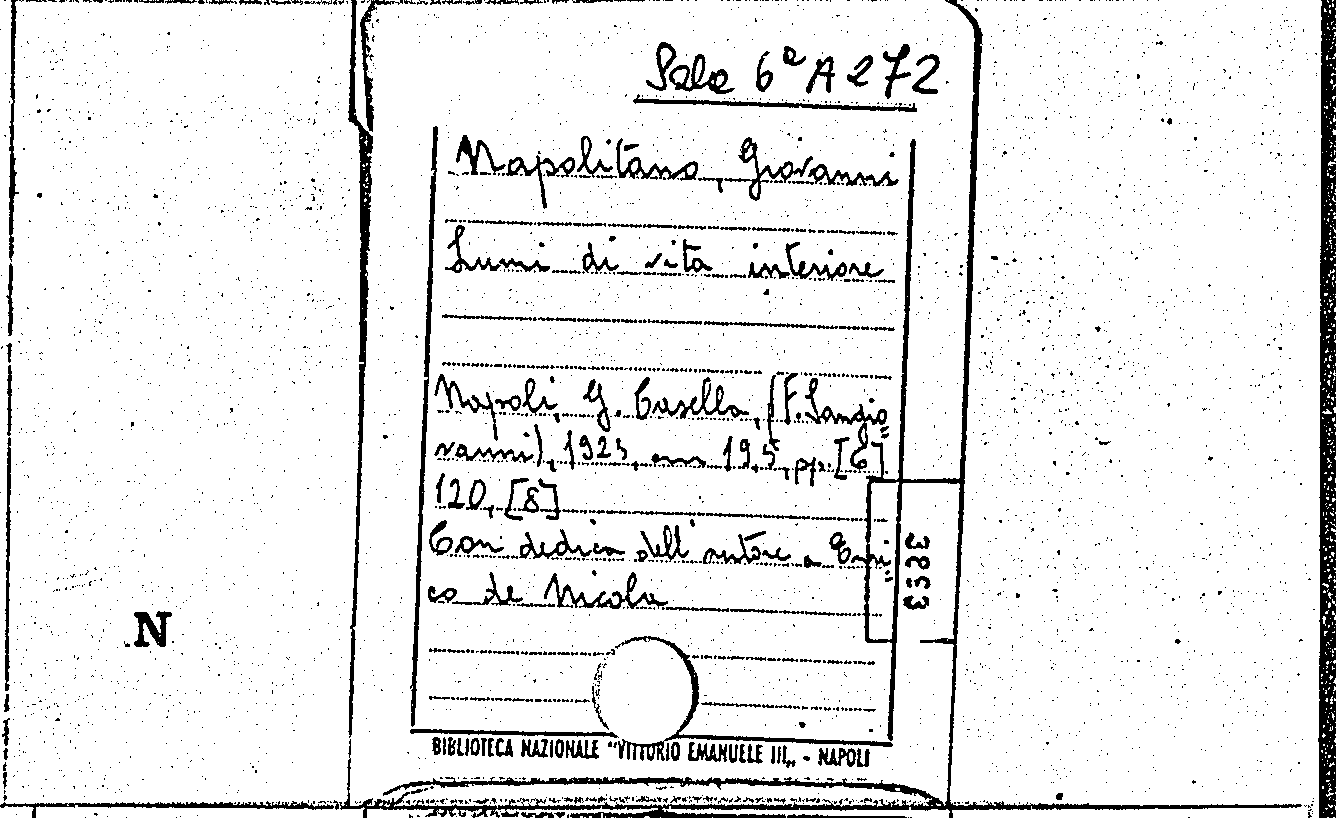 Sala 6ª A 272
Napolitano, Giovanni
Lumi di vita interiore
Napoli, G. Casella, (F. Sangio-
vanni), 1925, cm 19,5, pp. [6]
120, [8]
Con dedica dell'autore a Enri-
co de Nicola
33893
N
BIBLIOTECA NAZIONALE "VITTORIO EMANUELE III„ - NAPOLI